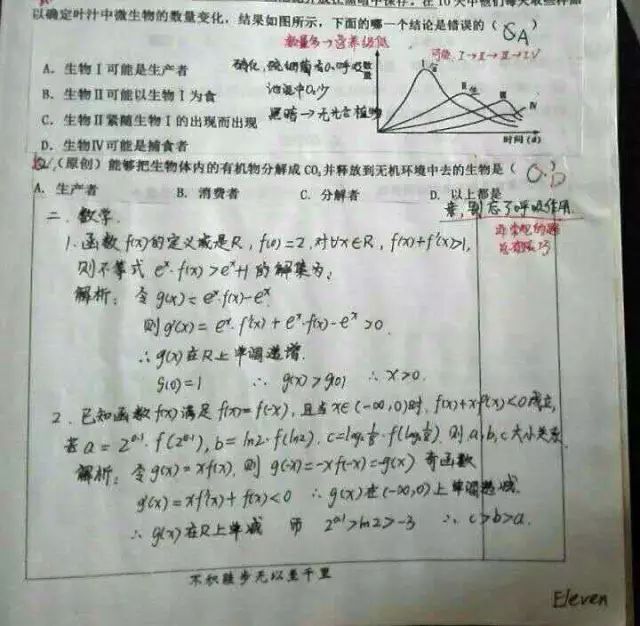 以确定叶汁中微生物的数量变化，结果如图所示，下面的哪一个结论是错误的（ A ）
A．生物Ⅰ可能是生产者
B．生物Ⅱ可能以生物Ⅰ为食
C．生物Ⅱ紧随生物Ⅰ的出现而出现
D．生物Ⅳ可能是捕食者
池泥中O₂少
数量
Ⅰ
Ⅱ
Ⅲ
Ⅳ
时间(d)
可能 Ⅰ→Ⅱ→Ⅲ→Ⅳ
（原创）能够把生物体内的有机物分解成CO₂并释放到无机环境中去的生物是（ D ）
A．生产者 B．消费者 C．分解者 D．以上都是
别忘了呼吸作用
二、数学．
1．函数f(x)的定义域是R，f(0)=2，对∀x∈R，f(x)+f'(x)>1，
则不等式 eˣ·f(x)>eˣ+1 的解集为：
解析：令g(x)=eˣ·f(x)-eˣ
则g'(x)=eˣ·f'(x)+eˣ·f(x)-eˣ>0．
∴g(x)在R上单调递增．
g(0)=1 ∴g(x)>g(0) ∴x>0．
2．已知函数f(x)满足f(x)=f(-x)，且当x∈(-∞,0)时，f(x)+xf'(x)<0成立，
若a=2^0.1·f(2^0.1)，b=ln2·f(ln2)，c=log₂⅛·f(log₂⅛)，则a，b，c大小关系
解析：令g(x)=xf(x)，则g(-x)=-xf(-x)=-g(x) 奇函数
g'(x)=xf'(x)+f(x)<0 ∴g(x)在(-∞,0)上单调递减．
∴g(x)在R上单减 而 2^0.1>ln2>-3 ∴c>b>a．
不积跬步无以至千里
Eleven